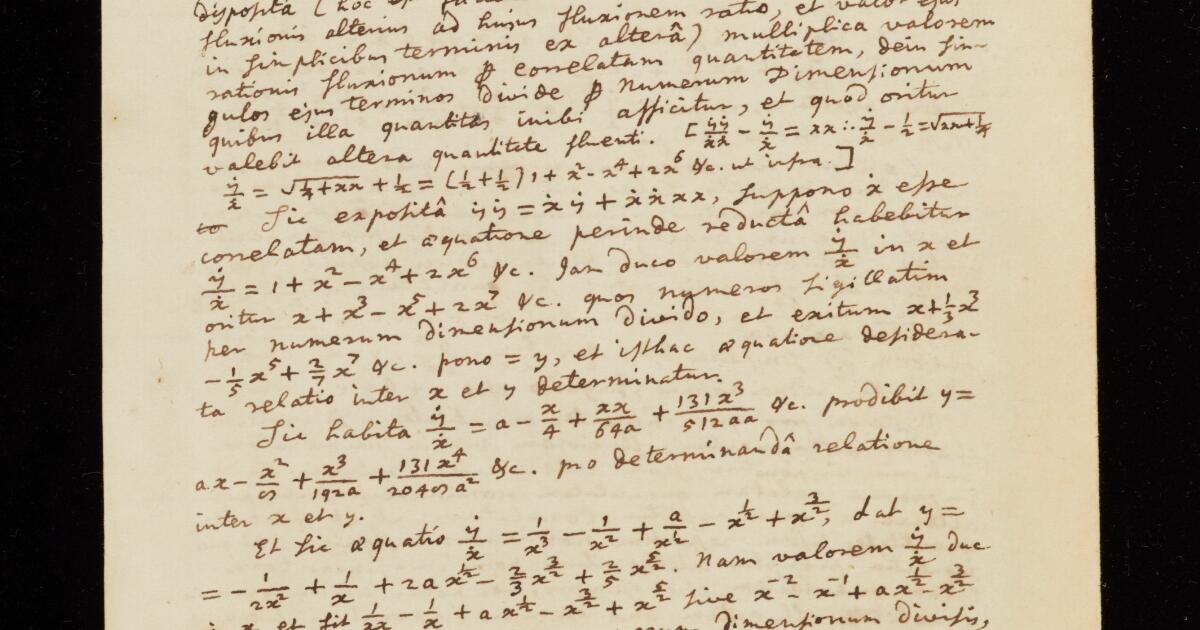 disposita (hoc est
fluxionis alterius ad hujus fluxionem ratio, et valor ejus
in simplicibus terminis ex alterâ) multiplica valorem
rationis fluxionum ꝑ correlatam quantitatem, dein sin-
gulos ejus terminos divide ꝑ numerum Dimensionum
quibus illa quantitas inibi afficitur, et quod oritur
valebit altera quantitate fluenti. [ẏẏ/ẋẋ - ẏ/ẋ = xx ∴ ẏ/ẋ - 1/2 = √xx+1/4
ẏ/ẋ = √1/4+xx + 1/2 = (1/2+1/2) 1 + x² - x⁴ + 2x⁶ &c. ut infra.]
Sic expositâ ẏẏ = ẋẏ + ẋẋxx, suppono ẋ esse
correlatam, et æquatione perinde reductâ habebitur
ẏ/ẋ = 1 + x² - x⁴ + 2x⁶ &c. Jam duco valorem ẏ/ẋ in x et
oritur x + x³ - x⁵ + 2x⁷ &c. quos numeros sigillatim
per numerum dimensionum divido, et exitum x + 1/3 x³
- 1/5 x⁵ + 2/7 x⁷ &c. pono = y, et isthac æquatione desidera-
ta relatio inter x et y determinatur.
Sic habita ẏ/ẋ = a - x/4 + xx/64a + 131x³/512aa &c. prodibit y =
ax - x²/8 + x³/192a + 131x⁴/2048a² &c. pro determinandâ relatione
inter x et y.
Et sic æquatio ẏ/ẋ = 1/x³ - 1/x² + a/x^½ - x^½ + x^3/2, dat y =
= - 1/2x² + 1/x + 2ax^½ - 2/3 x^3/2 + 2/5 x^5/2. Nam valorem ẏ/ẋ duc
in x et fit 1/xx - 1/x + ax^½ - x^3/2 + x^5/2 sive x⁻² - x⁻¹ + ax^½ - x^3/2
dimensionum divisis,